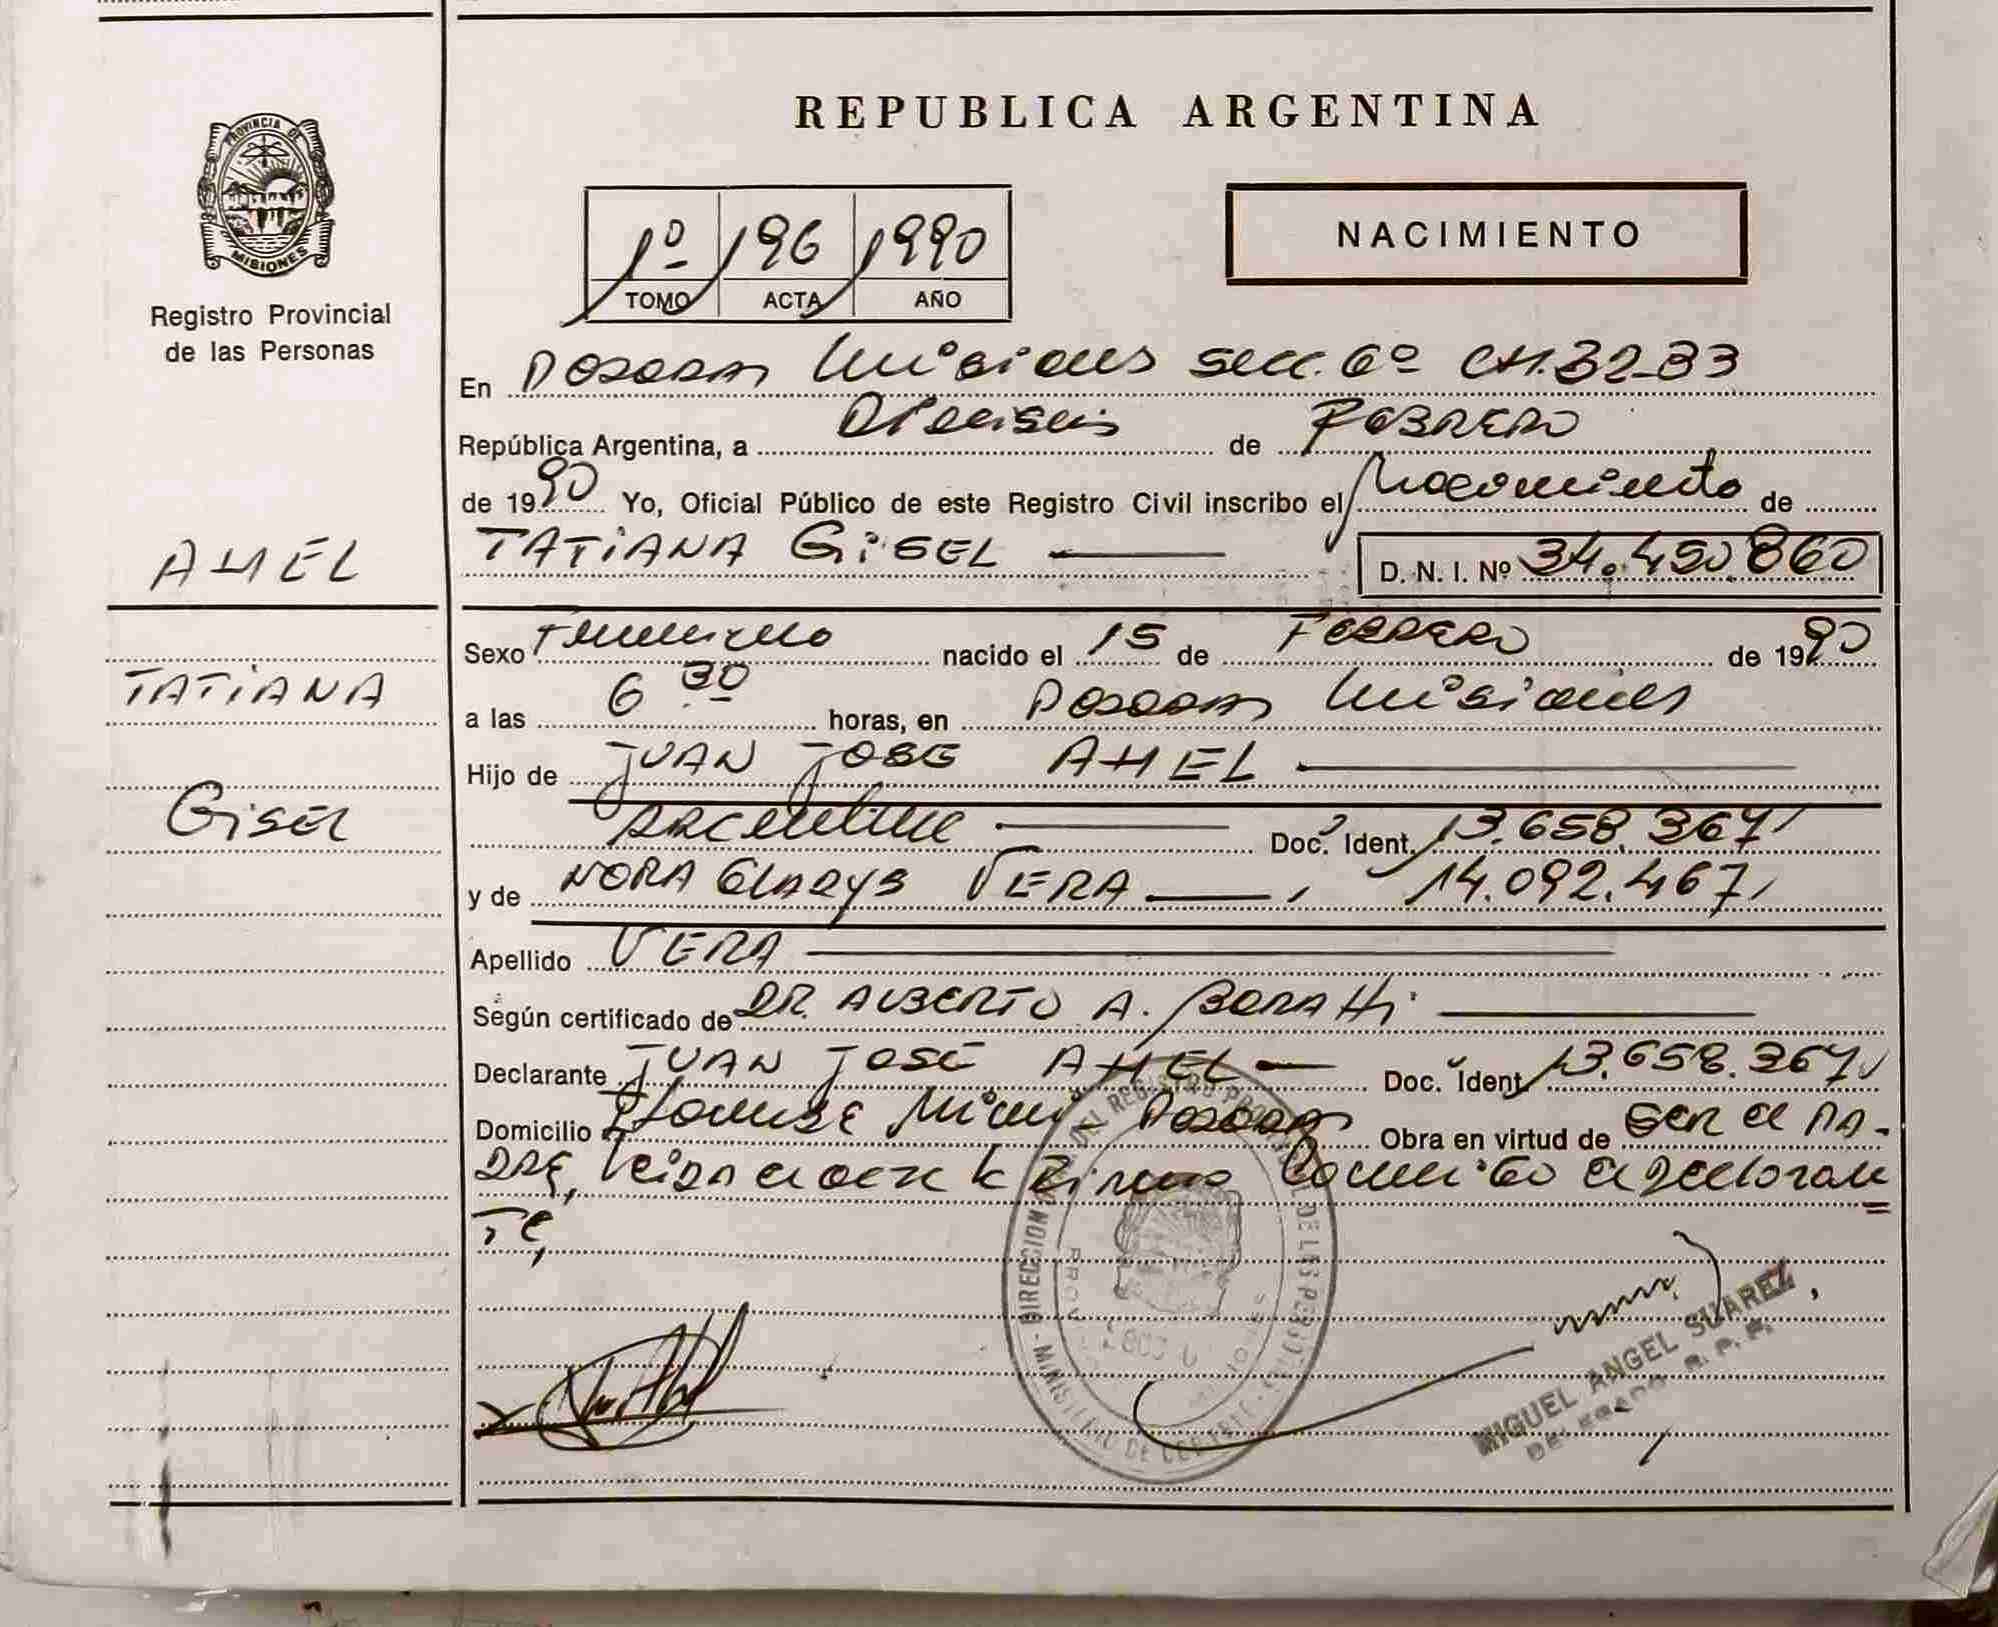 REPUBLICA ARGENTINA
PROVINCIA DE
MISIONES
Registro Provincial
de las Personas
1º 196 1990
TOMO ACTA AÑO
NACIMIENTO
En Posadas Misiones secc. 6º CH. 32-33
República Argentina, a Dieciseis de FEBRERO
de 1990 Yo, Oficial Público de este Registro Civil inscribo el Nacimiento de
AHEL
TATIANA GISEL D. N. I. Nº 34.450.860
Sexo Femenino nacido el 15 de FEBRERO de 1990
TATIANA
a las 6 30 horas, en Posadas Misiones
Hijo de JUAN JOSE AHEL
GISEL
ARGENTINO Doc. Ident. 13.658.367
y de NORA GLADYS VERA, 14.092.467,
Apellido VERA
Según certificado de DR. ALBERTO A.
Declarante JUAN JOSÉ AHEL Doc. Ident. 13.658.367
Domicilio Posadas Obra en virtud de SER el PA-
DRE, Leida el acta la Firma el declaran
TE,
DIRECCION DEL REGISTRO PROVINCIAL DE LAS PERSONAS
MINISTERIO DE
MIGUEL ANGEL SUAREZ
DELEGADO R. P. P.